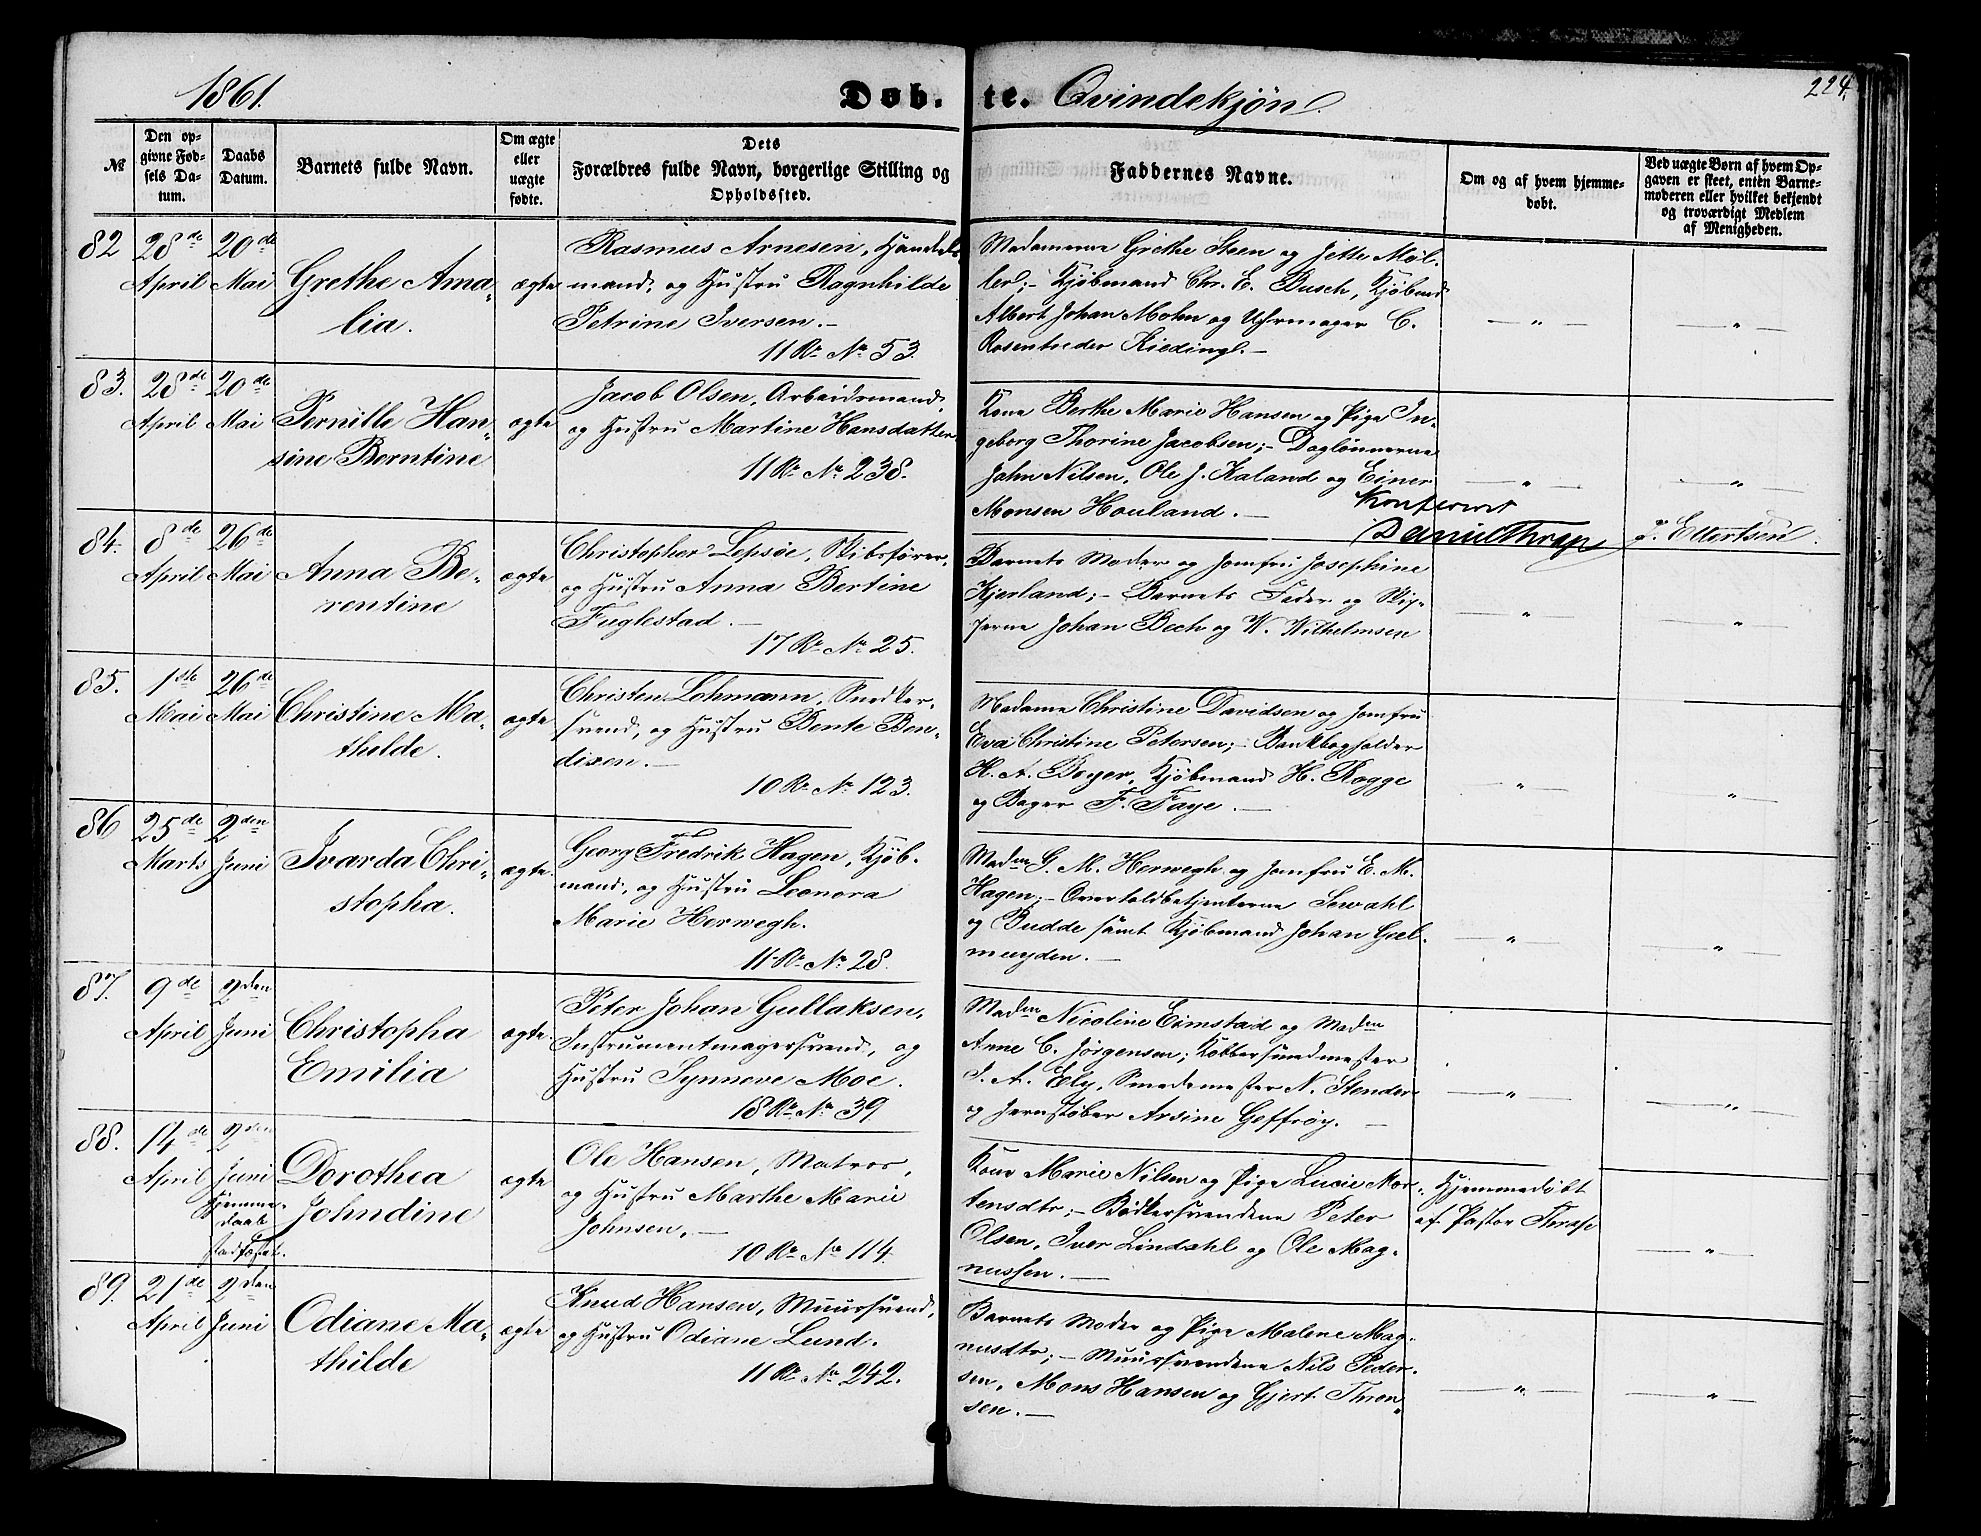 1861.
Døbte. Qvindekjøn.
224.
№
Den opgivne Fødsels Datum.
Daabs Datum.
Barnets fulde Navn.
Om ægte eller uægte fødte.
Dets Forældres fulde Navn, borgerlige Stilling og Opholdssted.
Faddernes Navne.
Om og af hvem hjemmedøbt.
Ved uægte Børn af hvem Opgaven er skeet, enten Barnemoderen eller hvilket bekjendt og troværdigt Medlem af Menigheden.
82 28de April 20de Mai
Grethe Ama-
lia.
ægte
Rasmus Arnesen, Handels-
mand, og Hustru Ragnhilde
Petrine Iversen.—
11 Rd No 53.
Madamerne Grethe Steen og Jette Møl-
ler;- Kjøbmand Chr. E. Busch, Kjøbmd
Albert Johan Mohn og Uhrmager C.
Rosentreder Kieding.—
— " —
— " —
83. 28de April 20de Mai
Pernille Han-
sine Berntine
ægte
Jacob Olsen, Arbeidsmand,
og Hustru Martine Hansdatter
11 Rd No 238.
Kone Berthe Marie Hansen og Pige In-
geborg Thorine Jacobsen;- Daglønnerne
John Nilsen, Ole J. Kaland og Einer
Monsen Houland.—
— " —
— " —
Konfereret
Daniel Thrap
J. Ellertsen.
84. 8de April 26de Mai
Anna Be-
rentine
ægte
Christopher Lepsøe, Skibsfører,
og Hustru Anna Bertine
Fuglestad.—
17 Rd No 25.
Barnets Moder og Jomfru Josephine
Kjerland;- Barnets Fader og Skip-
perne Johan Bech og W. Wilhelmsen
— " —
— " —
85. 1ste Mai 26de Mai
Christine Ma-
thilde.
ægte
Christen Lohmann, Snedker-
svend, og Hustru Bente Ben-
dixen.—
10 Rd No 123.
Madame Christine Davidsen og Jomfru
Eva Christine Petersen;- Bankbogholder
H. A. Boyer, Kjøbmand H. Rogge
og Bager F. Faye.—
— " —
— " —
86 25de Marts 2den Juni
Ivarda Chri-
stopha.
ægte.
Georg Fredrik Hagen, Kjøb-
mand, og Hustru Leonora
Marie Herwegh.
11 Rd No 28.
Madme G. M. Herwegh og Jomfru E. M.
Hagen;- Overtoldbetjenterne Sewahl
og Budde samt Kjøbmand Johan Gæl-
muyden.—
— " —
— " —
87. 9de April 2den Juni
Christopha
Emilia
ægte.
Peter Johan Gullaksen,
Instrumentmagersvend, og
Hustru Synneve Moe.
18 Rd No 39.
Madme Nicoline Eimstad og Madme
Anne C. Jørgensen; Kobbersmedmester
J. A. Ely, Smedemester N. Stender
og Jernstøber Arsine Geffrøy.—
— " —
— " —
88. 14de April 2den Juni
Hjemme-
daab
stadfæstet.
Dorothea
Johndine
ægte
Ole Hansen, Matros,
og Hustru Marthe Marie
Johnsen.—
10 Rd No 114.
Kone Marie Nilsen og Pige Lucie Mor-
tensdtr;- Bødkersvendene Peter
Olsen, Iver Lindahl og Ole Mag-
nussen.—
Hjemmedøbt
af Pastor Thrap
— " —
89. 21de April 2den Juni
Odiane Ma-
thilde
ægte
Knud Hansen, Muursvend,
og Hustru Odiane Lund.
11 Rd No 242.
Barnets Moder og Pige Malene Mag-
nusdtr;- Muursvendene Nils Peder-
sen, Mons Hansen og Gjert Thron-
sen.—
— " —
— " —